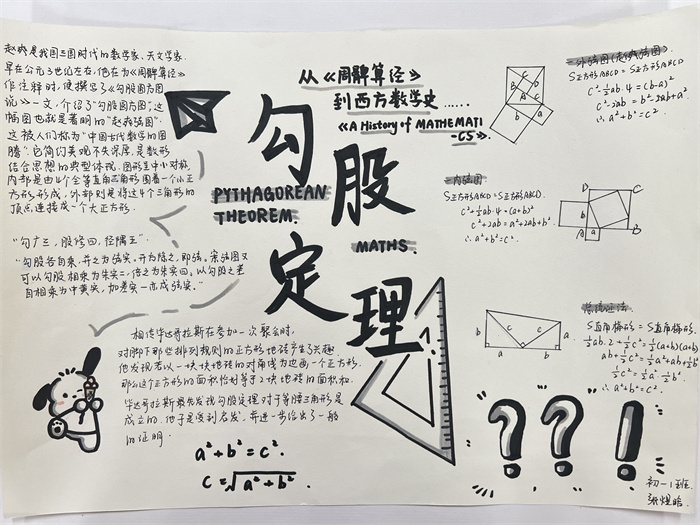 赵爽是我国三国时代的数学家、天文学家.
早在公元3世纪左右,他在为《周髀算经》
作注释时,便撰写了《勾股圆方图
说》一文,介绍了"勾股圆方图",这
幅图也就是著明的"赵爽弦图".
这被人们称为"中国古代数学的图
腾".它简约美观不失深厚,是数形
结合思想的典型体现.图形呈中心对称,
内部是由4个全等直角三角形围着一个小正
方形形成,外部则是将这4个三角形的
顶点连接成一个大正方形.
"勾广三,股修四,径隅五".
"勾股各自乘,并之为弦实.开方除之,即弦.案弦图又
可以勾股相乘为朱实二,倍之为朱实四.以勾股之差
自相乘为中黄实,加差实一亦成弦实."
从《周髀算经》
到西方数学史……
《A History of MATHEMATI
-CS》.
勾股
定理
PYTHAGOREAN
THEOREM.
MATHS.
相传毕达哥拉斯在参加一次聚会时,
对脚下那些排列规则的正方形地砖产生了兴趣.
他发现若以一块块地砖的对角线为边画一个正方形.
那么这个正方形的面积恰好等于2块地砖的面积和.
毕达哥拉斯最先发现勾股定理对于等腰三角形是
成立的.他于是受到启发,并进一步给出了一般
的证明.
a²+b²=c².
c=√a²+b².
一外弦图(赵爽弦图)
S正方形ABCD=S正方形ABCD
c²-½ab·4=(b-a)²
c²-2ab=b²-2ab+a²
∴a²+b²=c²
D
C
B
A
c
b
a
二内弦图
S正方形ABCD=S正方形ABCD.
c²+½ab·4=(a+b)²
c²+2ab=a²+2ab+b²
∴a²+b²=c².
D
C
c
b
A
a
B
总统证法
S直角梯形=S直角梯形
½ab·2+½c²=½(a+b)(a+b)
ab+½c²=½a²+ab+½b²
½c²=½a²+½b²
∴a²+b²=c².
b
c
c
a
a
b
??!
初一1班.